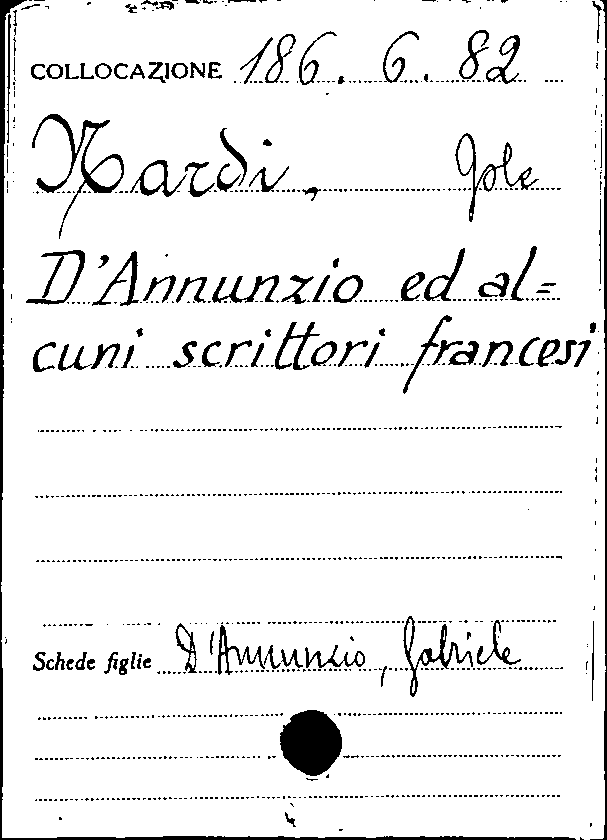 COLLOCAZIONE 186. 6. 82
Nardi, Jole
D'Annunzio ed al=
cuni scrittori francesi
Schede figlie D'Annunzio, Gabriele